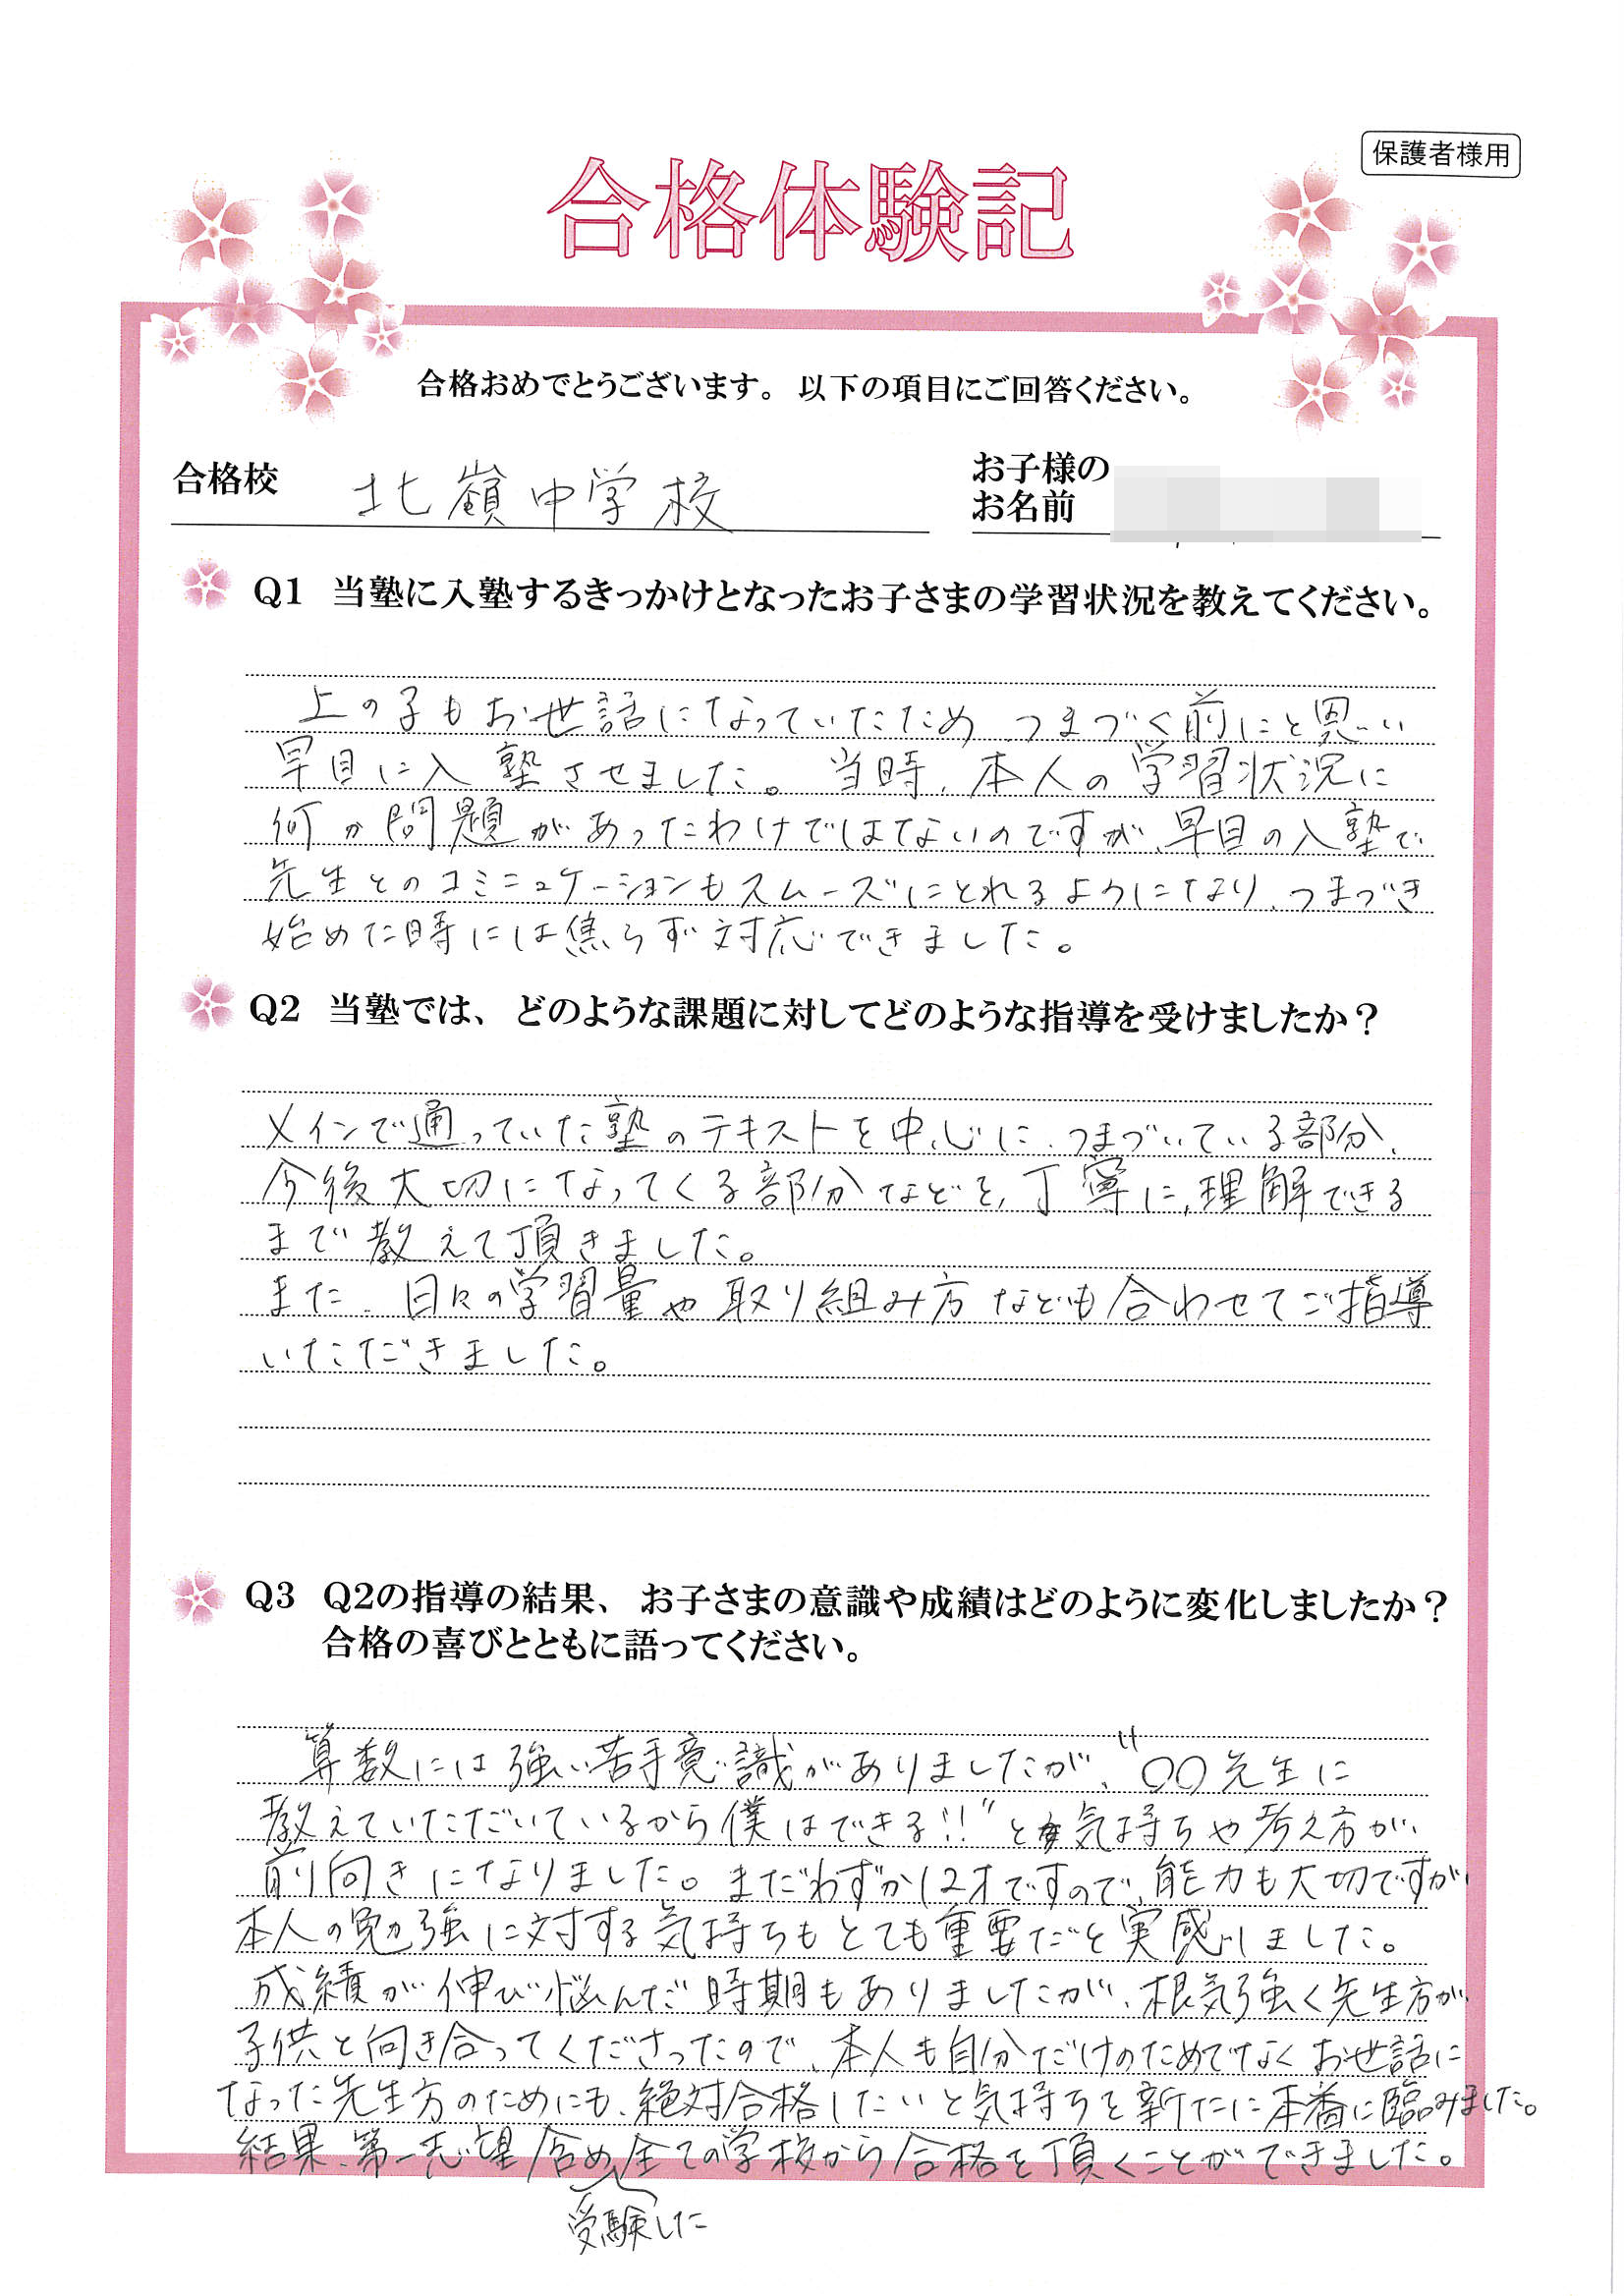 保護者様用
合格体験記
合格おめでとうございます。 以下の項目にご回答ください。
合格校 北嶺中学校
お子様の
お名前
Q1 当塾に入塾するきっかけとなったお子さまの学習状況を教えてください。
上の子もお世話になっていたため、つまづく前にと思い
早目に入塾させました。当時、本人の学習状況に
何か問題があったわけではないのですが、早目の入塾で
先生とのコミニュケーションもスムーズにとれるようになり、つまづき
始めた時には焦らず対応できました。
Q2 当塾では、どのような課題に対してどのような指導を受けましたか？
メインで通っていた塾のテキストを中心に、つまづいている部分、
今後大切になってくる部分などを、丁寧に、理解できる
まで教えて頂きました。
また、日々の学習量や取り組み方なども合わせてご指導
いただきました。
Q3 Q2の指導の結果、お子さまの意識や成績はどのように変化しましたか？
合格の喜びとともに語ってください。
算数には強い苦手意識がありましたが、"○○先生に
教えていただいているから僕はできる!!"と気持ちや考え方が
前向きになりました。まだわずか12才ですので、能力も大切ですが
本人の勉強に対する気持ちもとても重要だと実感しました。
成績が伸び悩んだ時期もありましたが、根気強く先生方が
子供と向き合ってくださったので、本人も自分だけのためでなくお世話に
なった先生方のためにも、絶対合格したいと気持ちを新たに本番に臨みました。
結果、第一志望含め全ての学校から合格を頂くことができました。
受験した